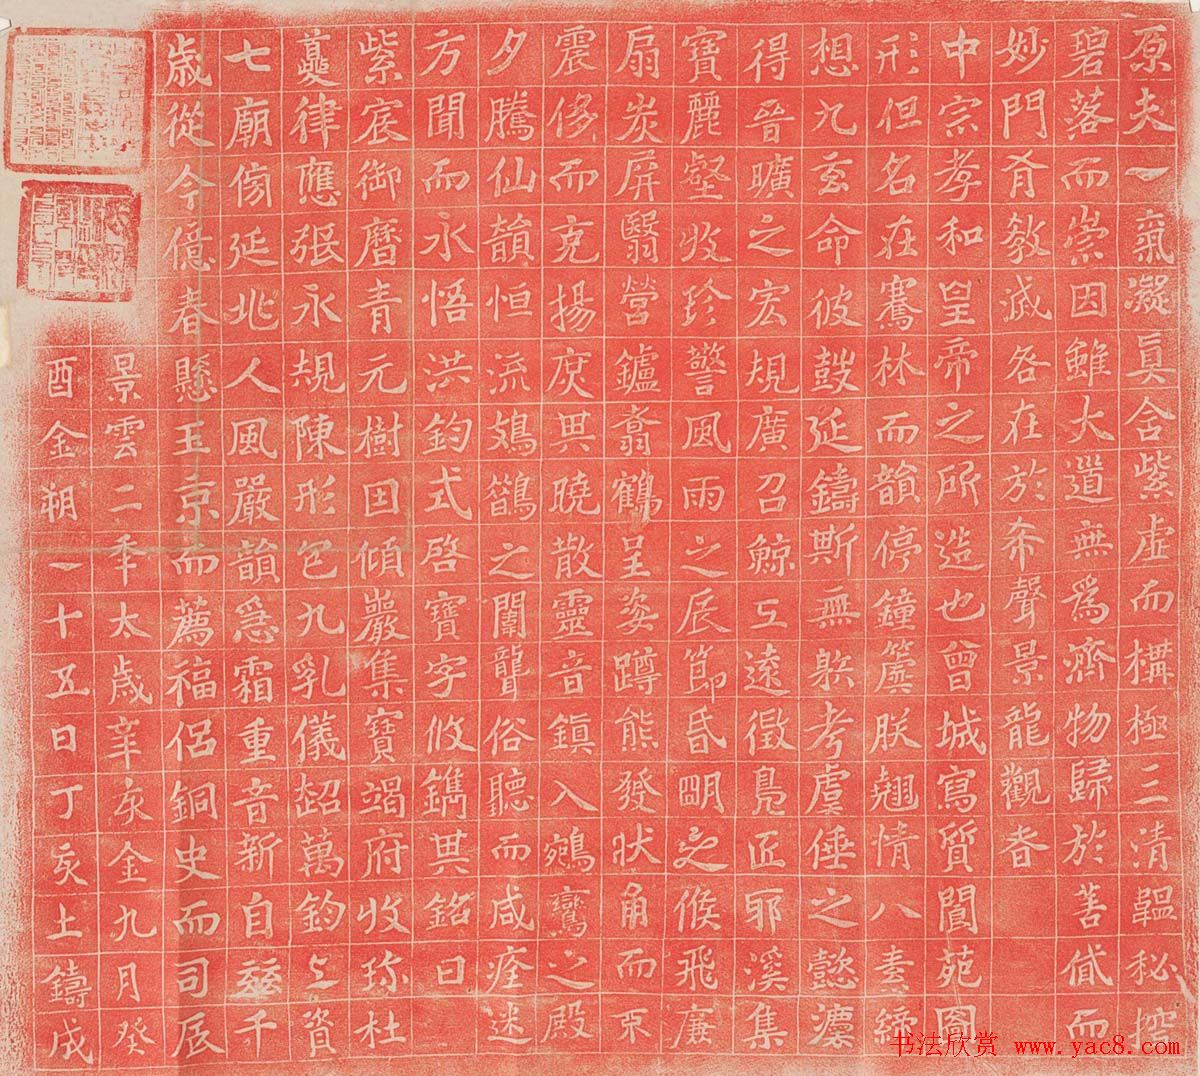 原夫一氣凝真含紫虛而構極三清韞秘控
碧落而崇因雖大道無為濟物歸於善貸而
妙門有教滅咎在於希聲景龍觀者
中宗孝和皇帝之所造也曾城寫質閬苑圖
形但名在騫林而韻停鐘簴朕翹情八素締
想九玄命彼鼓延鑄斯無射考虞倕之懿灋
得晉曠之宏規廣召鯨工遠徵鳧匠耶溪集
寶麗壑收珍警風雨之辰節昏明之候飛廉
扇炭屏翳營鑪翥鶴呈姿蹲熊發狀角而不
震侈而克揚庶其曉散靈音鎮入鵷鸞之殿
夕騰仙韻恒流鳷鵲之闈聾俗聽而咸痊迷
方聞而永悟洪鈞式啓寶字攸鐫其銘曰
紫宸御曆青元樹因傾巖集寶竭府收珍杜
夔律應張永規陳形包九乳儀超萬鈞上資
七廟傍延兆人風嚴韻急霜重音新自茲千
歲從今億春懸玉京而薦福侶銅史而司辰
景雲二年太歲辛亥金九月癸
酉金朔一十五日丁亥土鑄成
书法欣赏 www.yac8.com